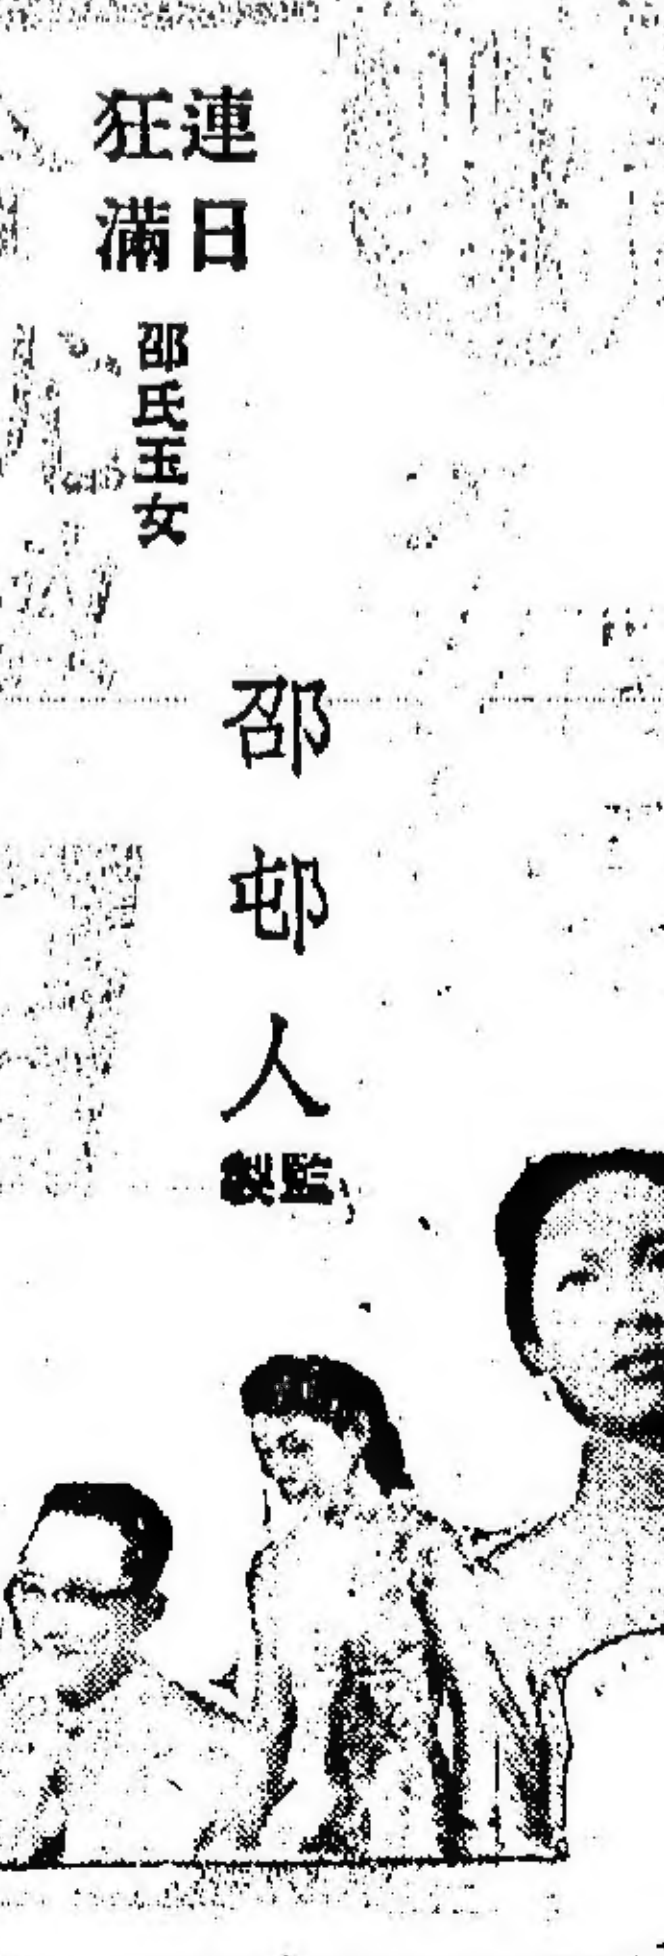 連日
狂滿
邵氏玉女
邵邨人
監製